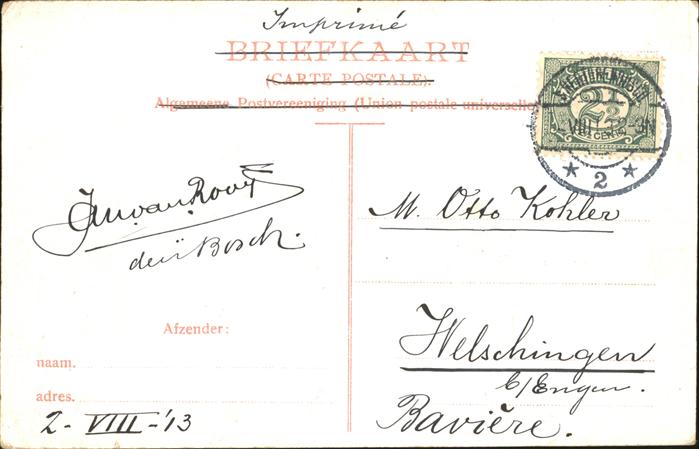 Imprimé
BRIEFKAART
(CARTE POSTALE).
Algemeene Postvereeniging (Union postale universelle)
2½
CENT
VIII
2
den Bosch.
M. Otto Kohler
Welschingen
b/Engen.
Bavière.
Afzender:
naam.
adres.
2-VIII-'13